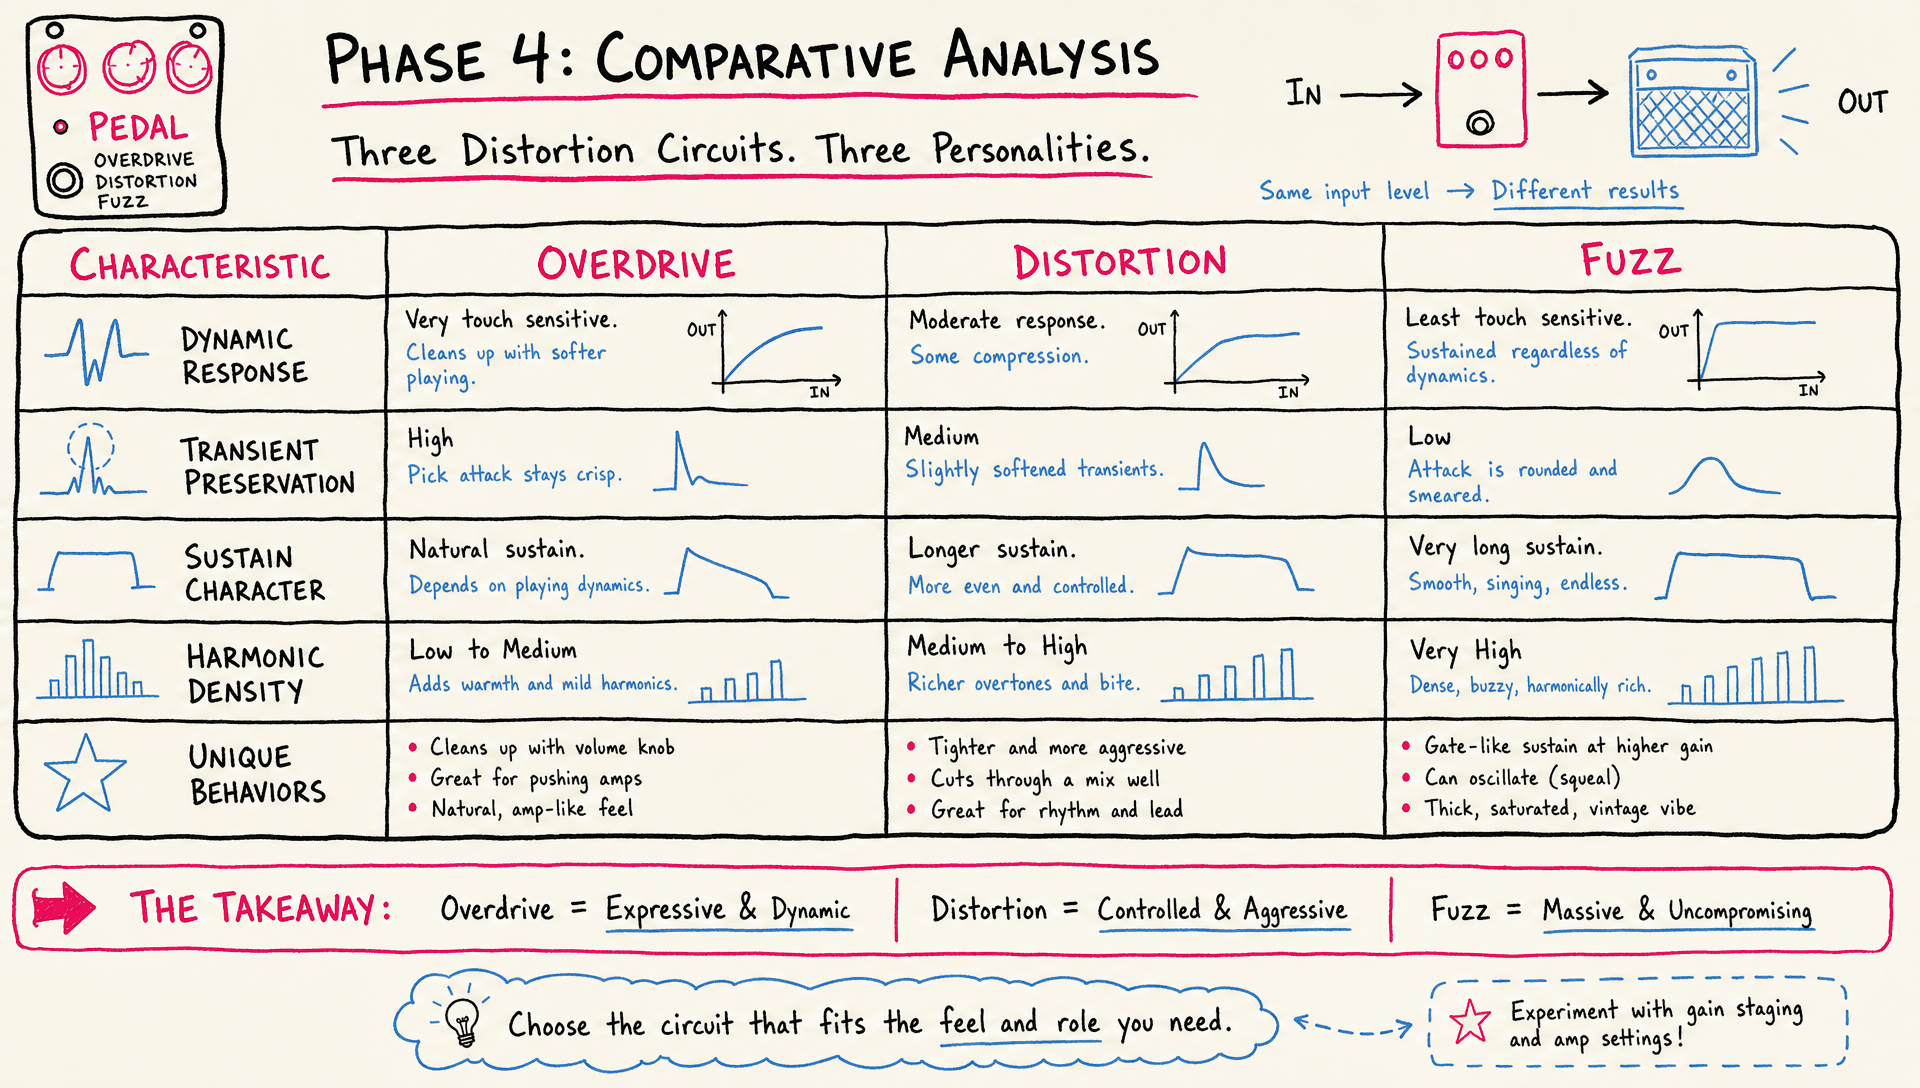 PEDAL
OVERDRIVE
DISTORTION
FUZZ
PHASE 4: COMPARATIVE ANALYSIS
Three Distortion Circuits. Three Personalities.
IN
OUT
Same input level → Different results
CHARACTERISTIC
OVERDRIVE
DISTORTION
FUZZ
DYNAMIC
RESPONSE
Very touch sensitive.
Cleans up with softer
playing.
OUT
IN
Moderate response.
Some compression.
OUT
IN
Least touch sensitive.
Sustained regardless of
dynamics.
OUT
IN
TRANSIENT
PRESERVATION
High
Pick attack stays crisp.
Medium
Slightly softened transients.
Low
Attack is rounded and
smeared.
SUSTAIN
CHARACTER
Natural sustain.
Depends on playing dynamics.
Longer sustain.
More even and controlled.
Very long sustain.
Smooth, singing, endless.
HARMONIC
DENSITY
Low to Medium
Adds warmth and mild harmonics.
Medium to High
Richer overtones and bite.
Very High
Dense, buzzy, harmonically rich.
UNIQUE
BEHAVIORS
• Cleans up with volume knob
• Great for pushing amps
• Natural, amp-like feel
• Tighter and more aggressive
• Cuts through a mix well
• Great for rhythm and lead
• Gate-like sustain at higher gain
• Can oscillate (squeal)
• Thick, saturated, vintage vibe
THE TAKEAWAY:
Overdrive = Expressive & Dynamic
Distortion = Controlled & Aggressive
Fuzz = Massive & Uncompromising
Choose the circuit that fits the feel and role you need.
Experiment with gain staging
and amp settings!